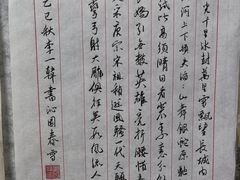 光千里冰封萬里雪飄望長城内
河上下頓失滔滔山舞銀蛇原馳
試比高須晴日看紅裝素裹分外
嬌引無數英雄競折腰惜
宋祖稍遜風騷一代天驕
彎弓射大雕俱往矣數風流人
乙巳秋李一韓書沁園春雪